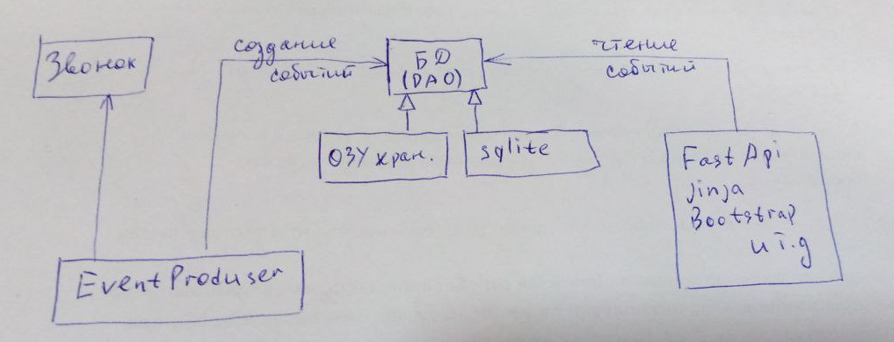 Звонок
создание
событий
БД
(DAO)
чтение
событий
ОЗУ хран.
sqlite
FastApi
Jinja
Bootstrap
и т.д
EventProduser